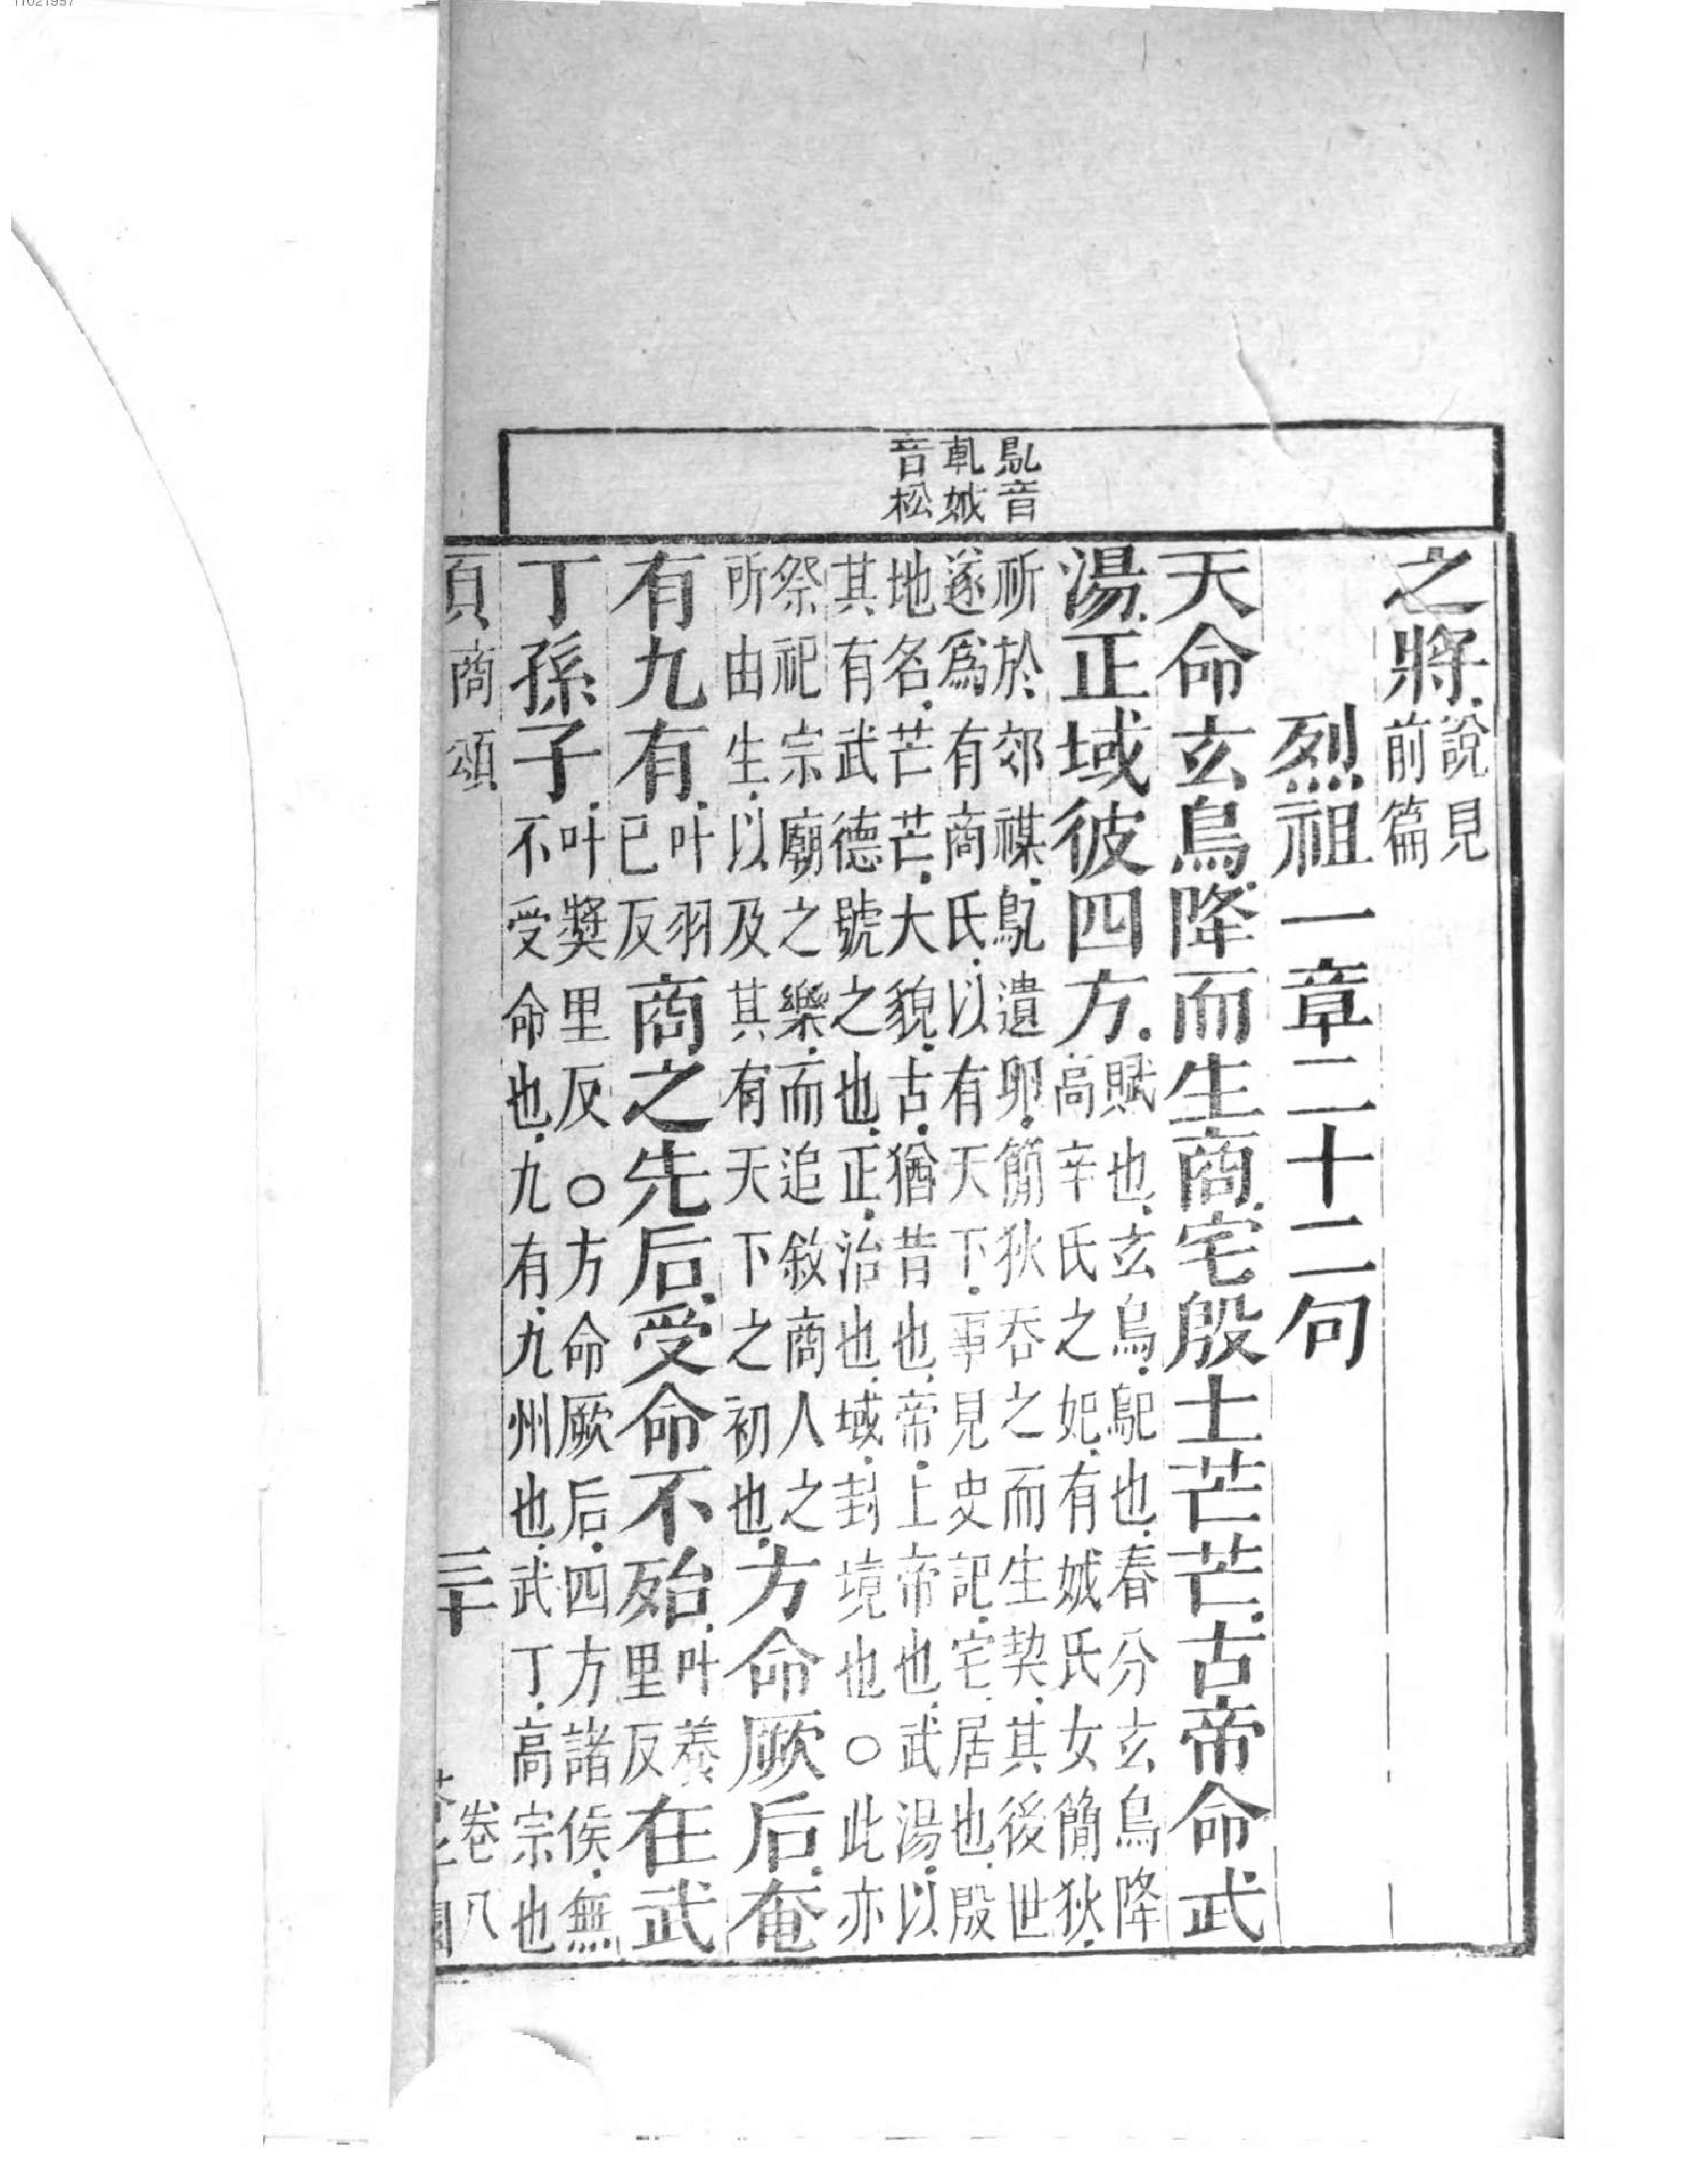 11021957
鳦音
軋娀
音松
之將說見
前篇
烈祖一章二十二句
天命玄鳥降而生商宅殷土芒芒古帝命武
湯正域彼四方賦也玄鳥鳦也春分玄鳥降
高辛氏之妃有娀氏女簡狄
祈於郊禖鳦遺卵簡狄吞之而生契其後世
遂爲有商氏以有天下事見史記宅居也殷
地名芒芒大貌古猶昔也帝上帝也武湯以
其有武德號之也正治也域封境也○此亦
祭祀宗廟之樂而追敘商人之
所由生以及其有天下之初也方命厥后奄
有九有叶羽
已反商之先后受命不殆叶養
里反在武
丁孫子叶奬里反○方命厥后四方諸侯無
不受命也九有九州也武丁高宗也
商頌
三十
卷八